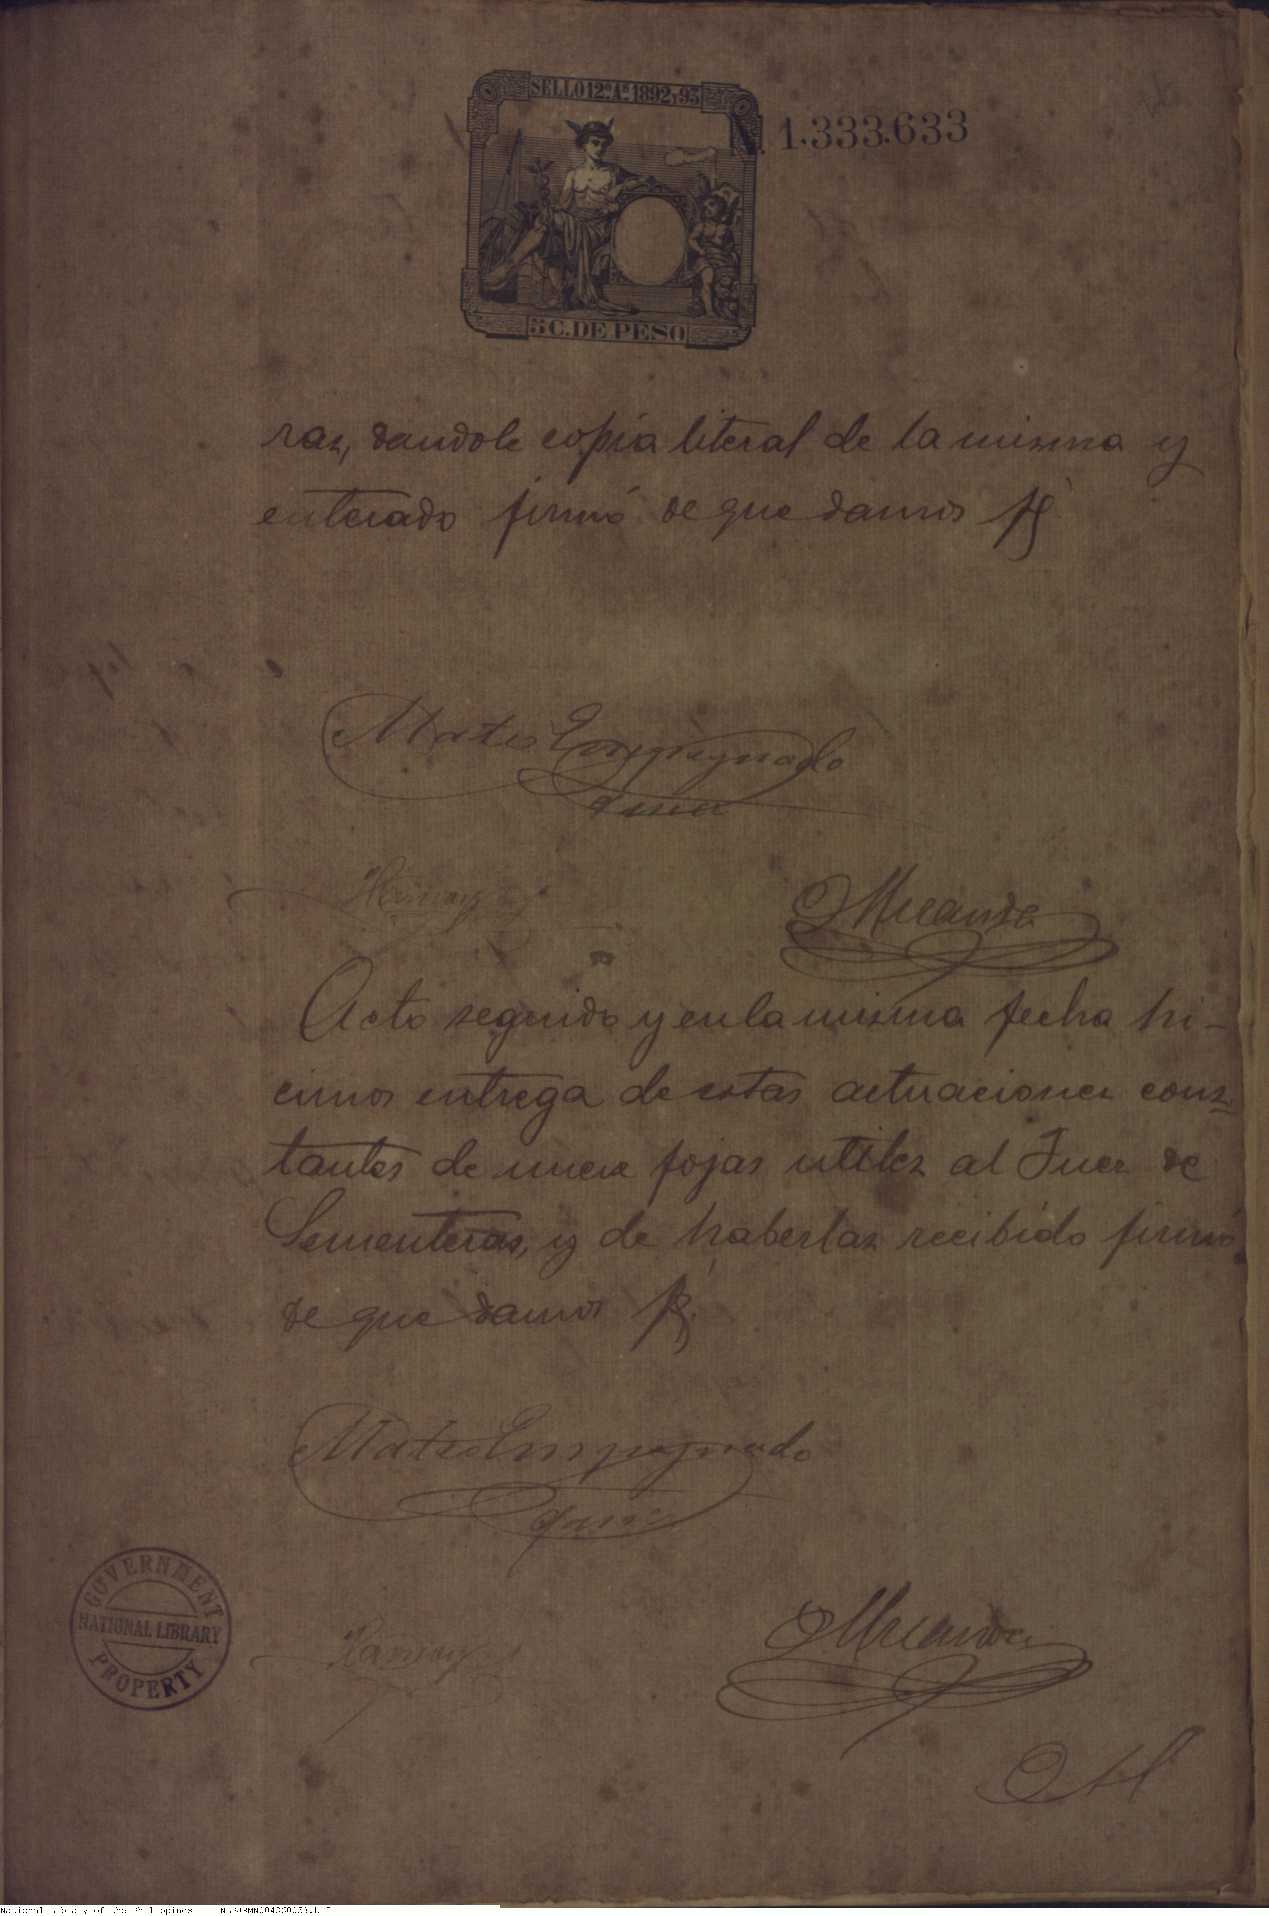 SELLO 12º Aº 1892 Y 93
N. 1.333.633
5 C. DE PESO
ras, dandole copia literal de la misma y
enterado firmó de que damos fé
Mateo Empeynado
Acto seguido y en la misma fecha hi-
cimos entrega de estas actuaciones cons-
tantes de nueve fojas utiles al Juez de
Sementeras, y de haberlas recibido firmó
de que damos fé.
Mateo Empeynado
GOVERNMENT
NATIONAL LIBRARY
PROPERTY
National Library of the Philippines